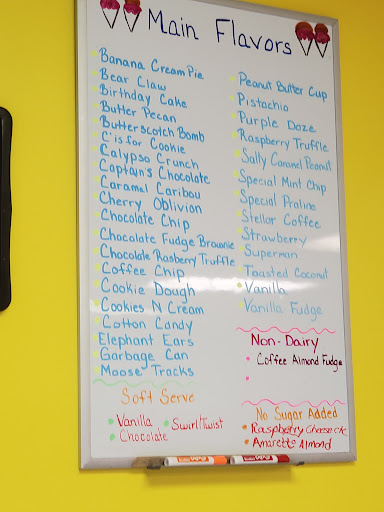 Main Flavors
Banana Cream Pie
Bear Claw
Birthday Cake
Butter Pecan
Butterscotch Bomb
C is for Cookie
Calypso Crunch
Captain's Chocolate
Caramel Caribou
Cherry Oblivion
Chocolate Chip
Chocolate Fudge Brownie
Chocolate Rasberry Truffle
Coffee Chip
Cookie Dough
Cookies N Cream
Cotton Candy
Elephant Ears
Garbage Can
Moose Tracks
Peanut Butter Cup
Pistachio
Purple Daze
Raspberry Truffle
Sally Caramel Peanut
Special Mint Chip
Special Praline
Stellar Coffee
Strawberry
Superman
Toasted Coconut
Vanilla
Vanilla Fudge
Non-Dairy
Coffee Almond Fudge
Soft Serve
Vanilla
Swirl/Twist
Chocolate
No Sugar Added
Raspberry Cheese ck
Amaretto Almond